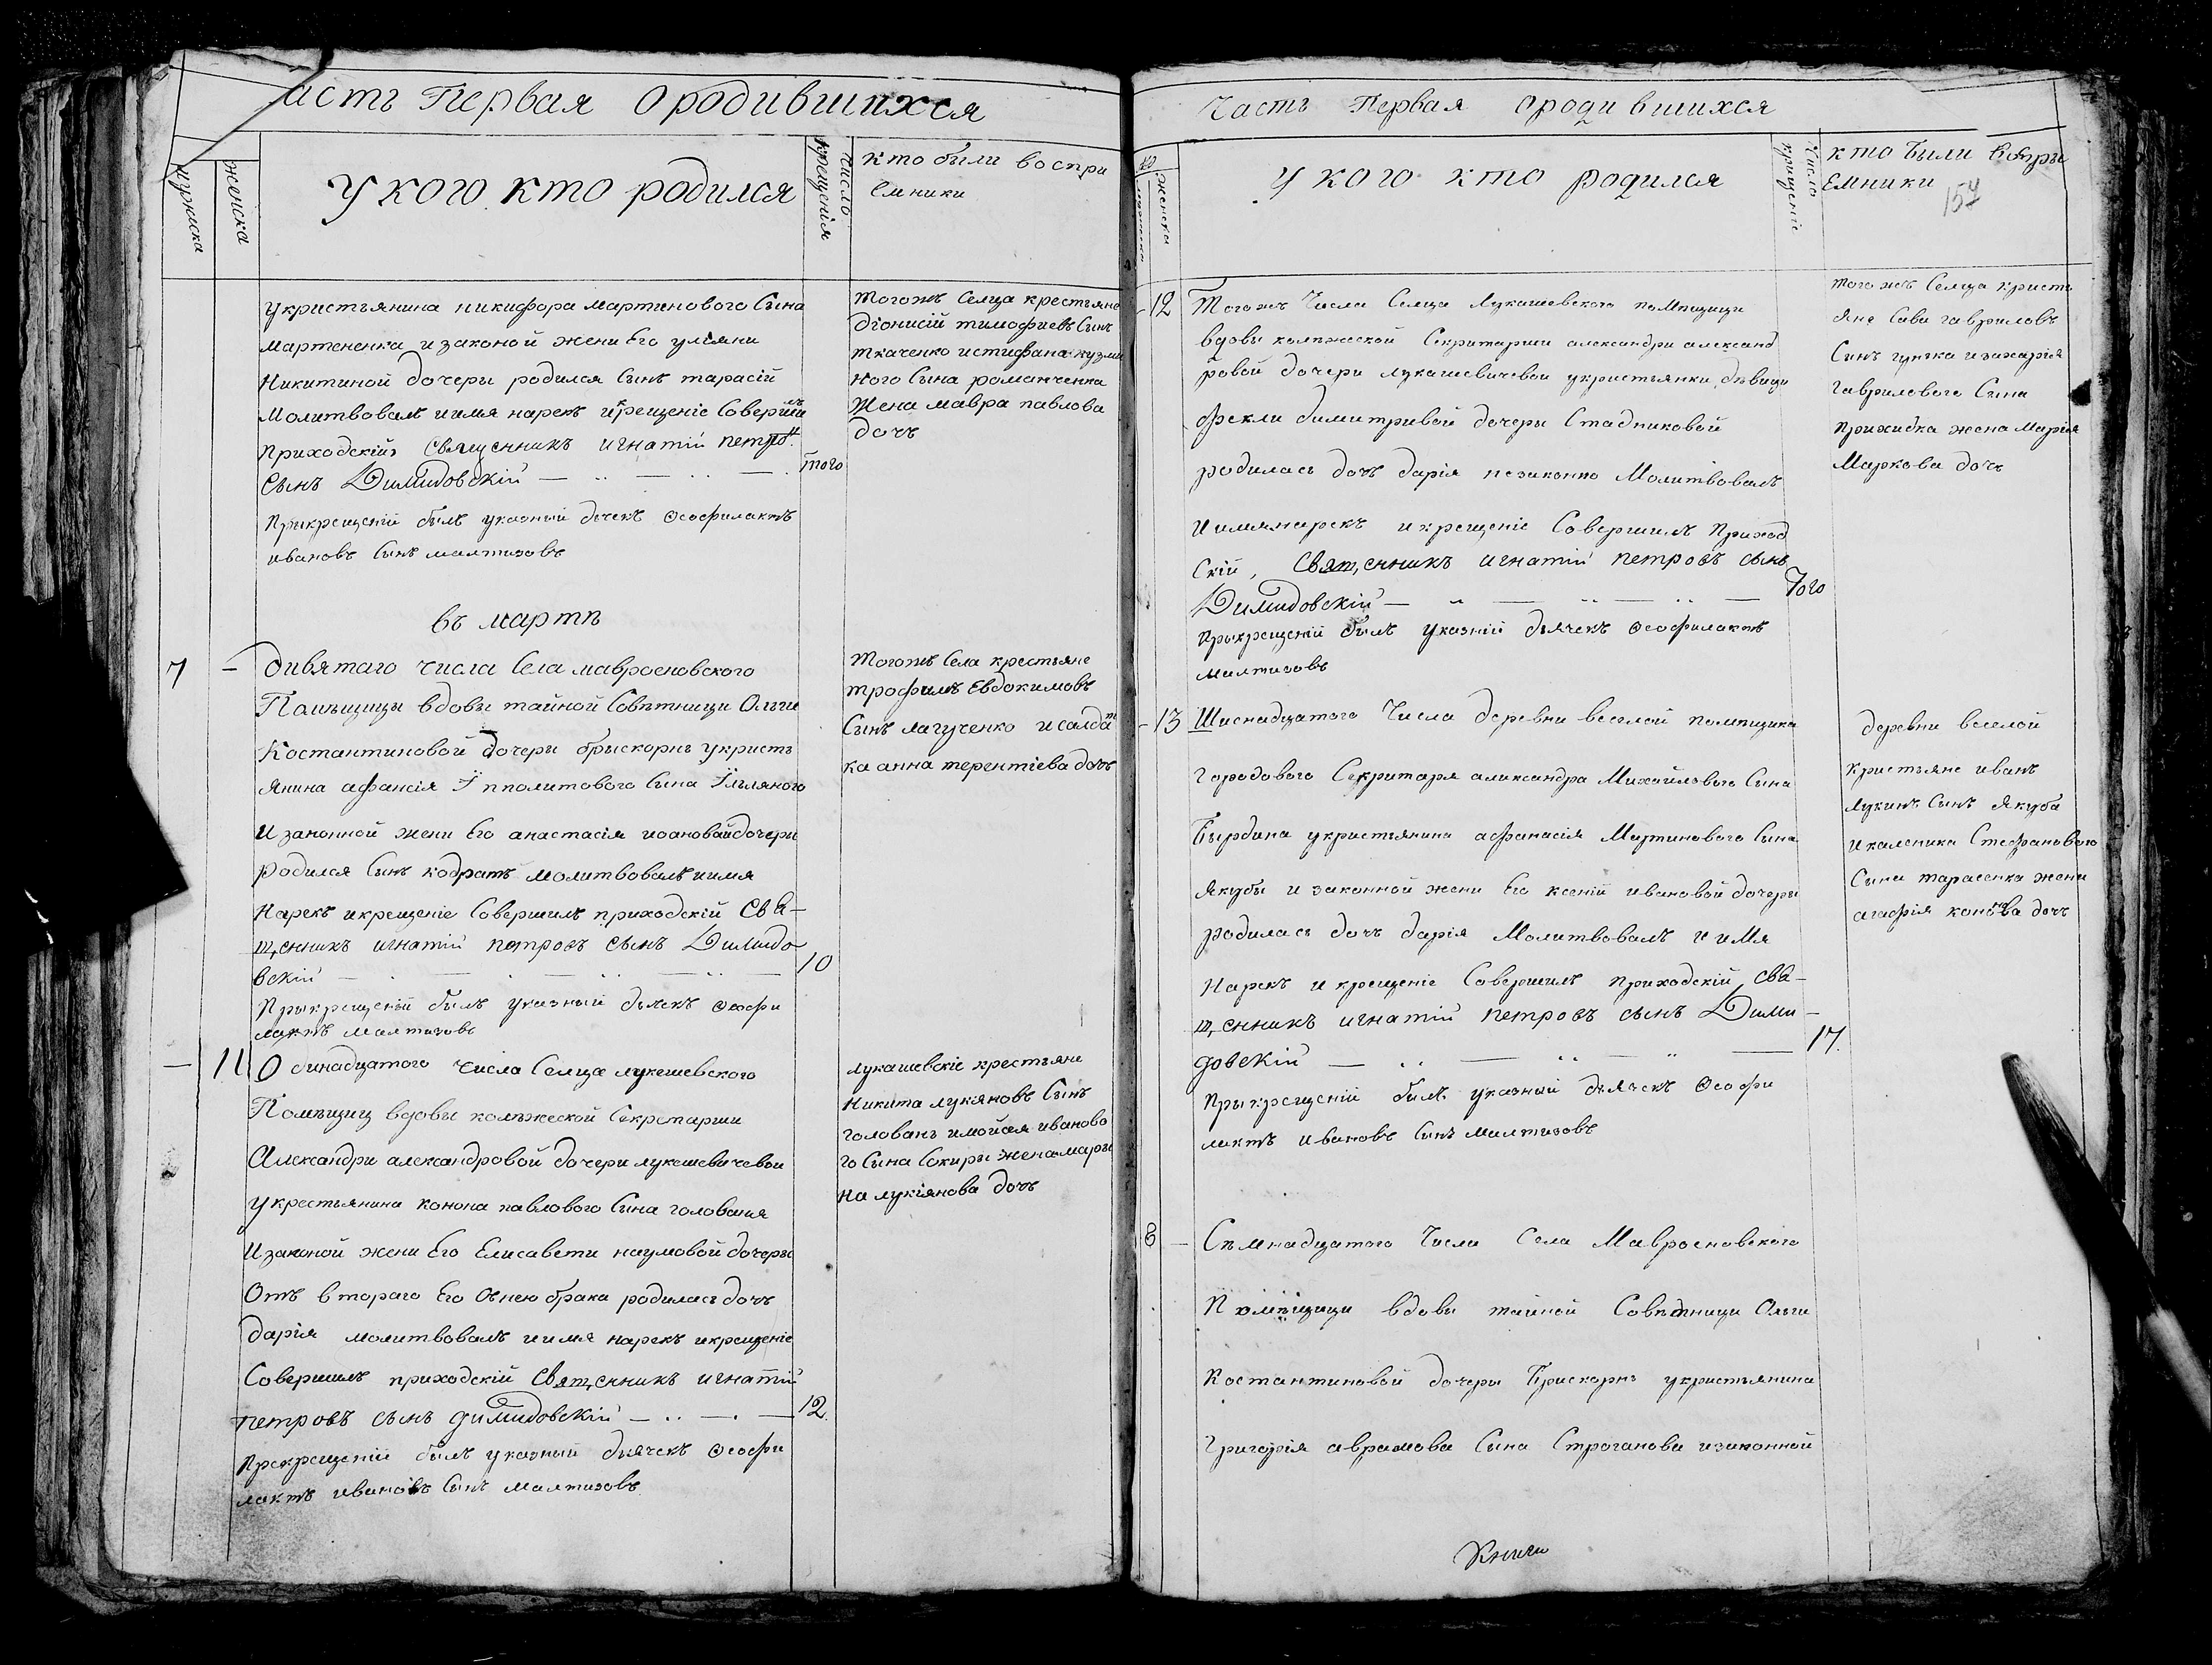 асть Первая О родившихся
мужска
женска
У кого кто родился
число крещенія
кто были воспри
емники
укристьянина никифора мартинового Сына
мартененка и законой жени Его улїяни
Никитиной дочеры родился Сынъ тарасїй
Молитвовалъ иимя нарекъ икрещенїе Соверши лъ
приходскїй Священникъ игнатїй петро въ
Сынъ Димидовскїй
того
Прыкрещенїй былъ указный дячекъ Ѳеофилактъ
ивановъ Сынъ малтизовъ
тогожъ Селца крестьяне
дїонисїй тимофиевъ Сынъ
ткаченко истифана кузми
ного Сына романченка
Жена мавра павлова
дочъ
въ мартѣ
7
дивятаго числа Села мавроеновского
Помѣщицы вдовы тайной Совѣтници Ольги
Костантиновой дочеры брыскорнъ укристь
янина афансїя Їпполитового Сына Їльляного
И законной жени Его анастасїи иоановой дочеры
Родился Сынъ кодратъ молитвовалъ иимя
Нарекъ икрещенїе Совершилъ приходскїй Свя-
щенникъ игнатїй петровъ сынъ Димидо
вскїй
10
Прыкрещенїй былъ указный дьячекъ Ѳеофи
лактъ малтизовъ
тогожъ Села крестьяне
трофимъ Евдокимовъ
Сынъ лагученко исалдат
ка анна терентїева дочъ
11
Одинадцатого числа Селца лукашевского
Помѣщиц вдовы колѣжеской Секретарши
Александри александровой дочери лукашевичевои
укрестьянина конона павлового Сына голованя
Изаконой жени Его Елисавети наумовой дочеры
Отъ втораго Его Сънею брака родилась дочъ
дарїя молитвовалъ иимя нарекъ икрещенїе
Совершилъ приходскїй Священникъ игнатїй
петровъ сынъ димидовскїй
12.
Прекрещенїй былъ указный дьячекъ Ѳеофи
лактъ ивановъ Сынъ малтизовъ
лукашевскїе крестьяне
Никита лукяновъ Сынъ
голованъ имойсея иваново
го Сына Сокиры жена мары
на лукїянова дочъ
Часть Первая ородившихся
женска
У кого кто родился
число крищенїе
кто были воспры
Емники
154
12
Тогожъ Числа Селца Лукашевского помѣщици
вдови колѣжеской Секритарши александри александ
ровой дочери лукашевичевои укристьянки, дѣвици
Феклы димитривой дочеры Стадниковой
родилась дочъ дарїя незаконно Молитвовалъ
Иимянарекъ икрещенїе Совершилъ Приход
скїй, Священникъ игнатїй петровъ сынъ
Димидовскїй
Того
Прыкрещенїй былъ указнїй дьячекъ Ѳеофилактъ
малтизовъ
тогожъ Селца кристь
яне Сава гавриловъ
Синъ гунька изахарїя
Гаврилового Сина
Прихидка жена Марїя
Маркова дочъ
13
Шиснадцатого Числа деревни веселой помѣщика
Городового Секритаря александра Михайлового Сина
Бырдина укристьянина афанасїя Мартинового Сына
Якубы и законной жени Его ксенїи ивановой дочеры
родилась дочъ дарїя Молитвовалъ и имя
Нарекъ и крещенїе Совершилъ приходскїй Свя-
щенникъ игнатїй петровъ сынъ Дими-
довскїй
17.
Прыкрещенїй былъ указный дьячекъ Ѳеофи
лактъ ивановъ Сынъ малтизовъ
деревни веселой
Кристьяне иванъ
лукинъ Сынъ Якуба
икаленика Стефанового
Сина тарасенка жени
агафїя кононова дочъ
8
Сѣмнадцатого Числа Села Мавроеновского
Помѣщици вдовы тайной Совѣтници Ольги
Костантиновой дочеры Брискорнъ укристьянина
Григорїя аврамова Сина Строганова изаконной
Книги